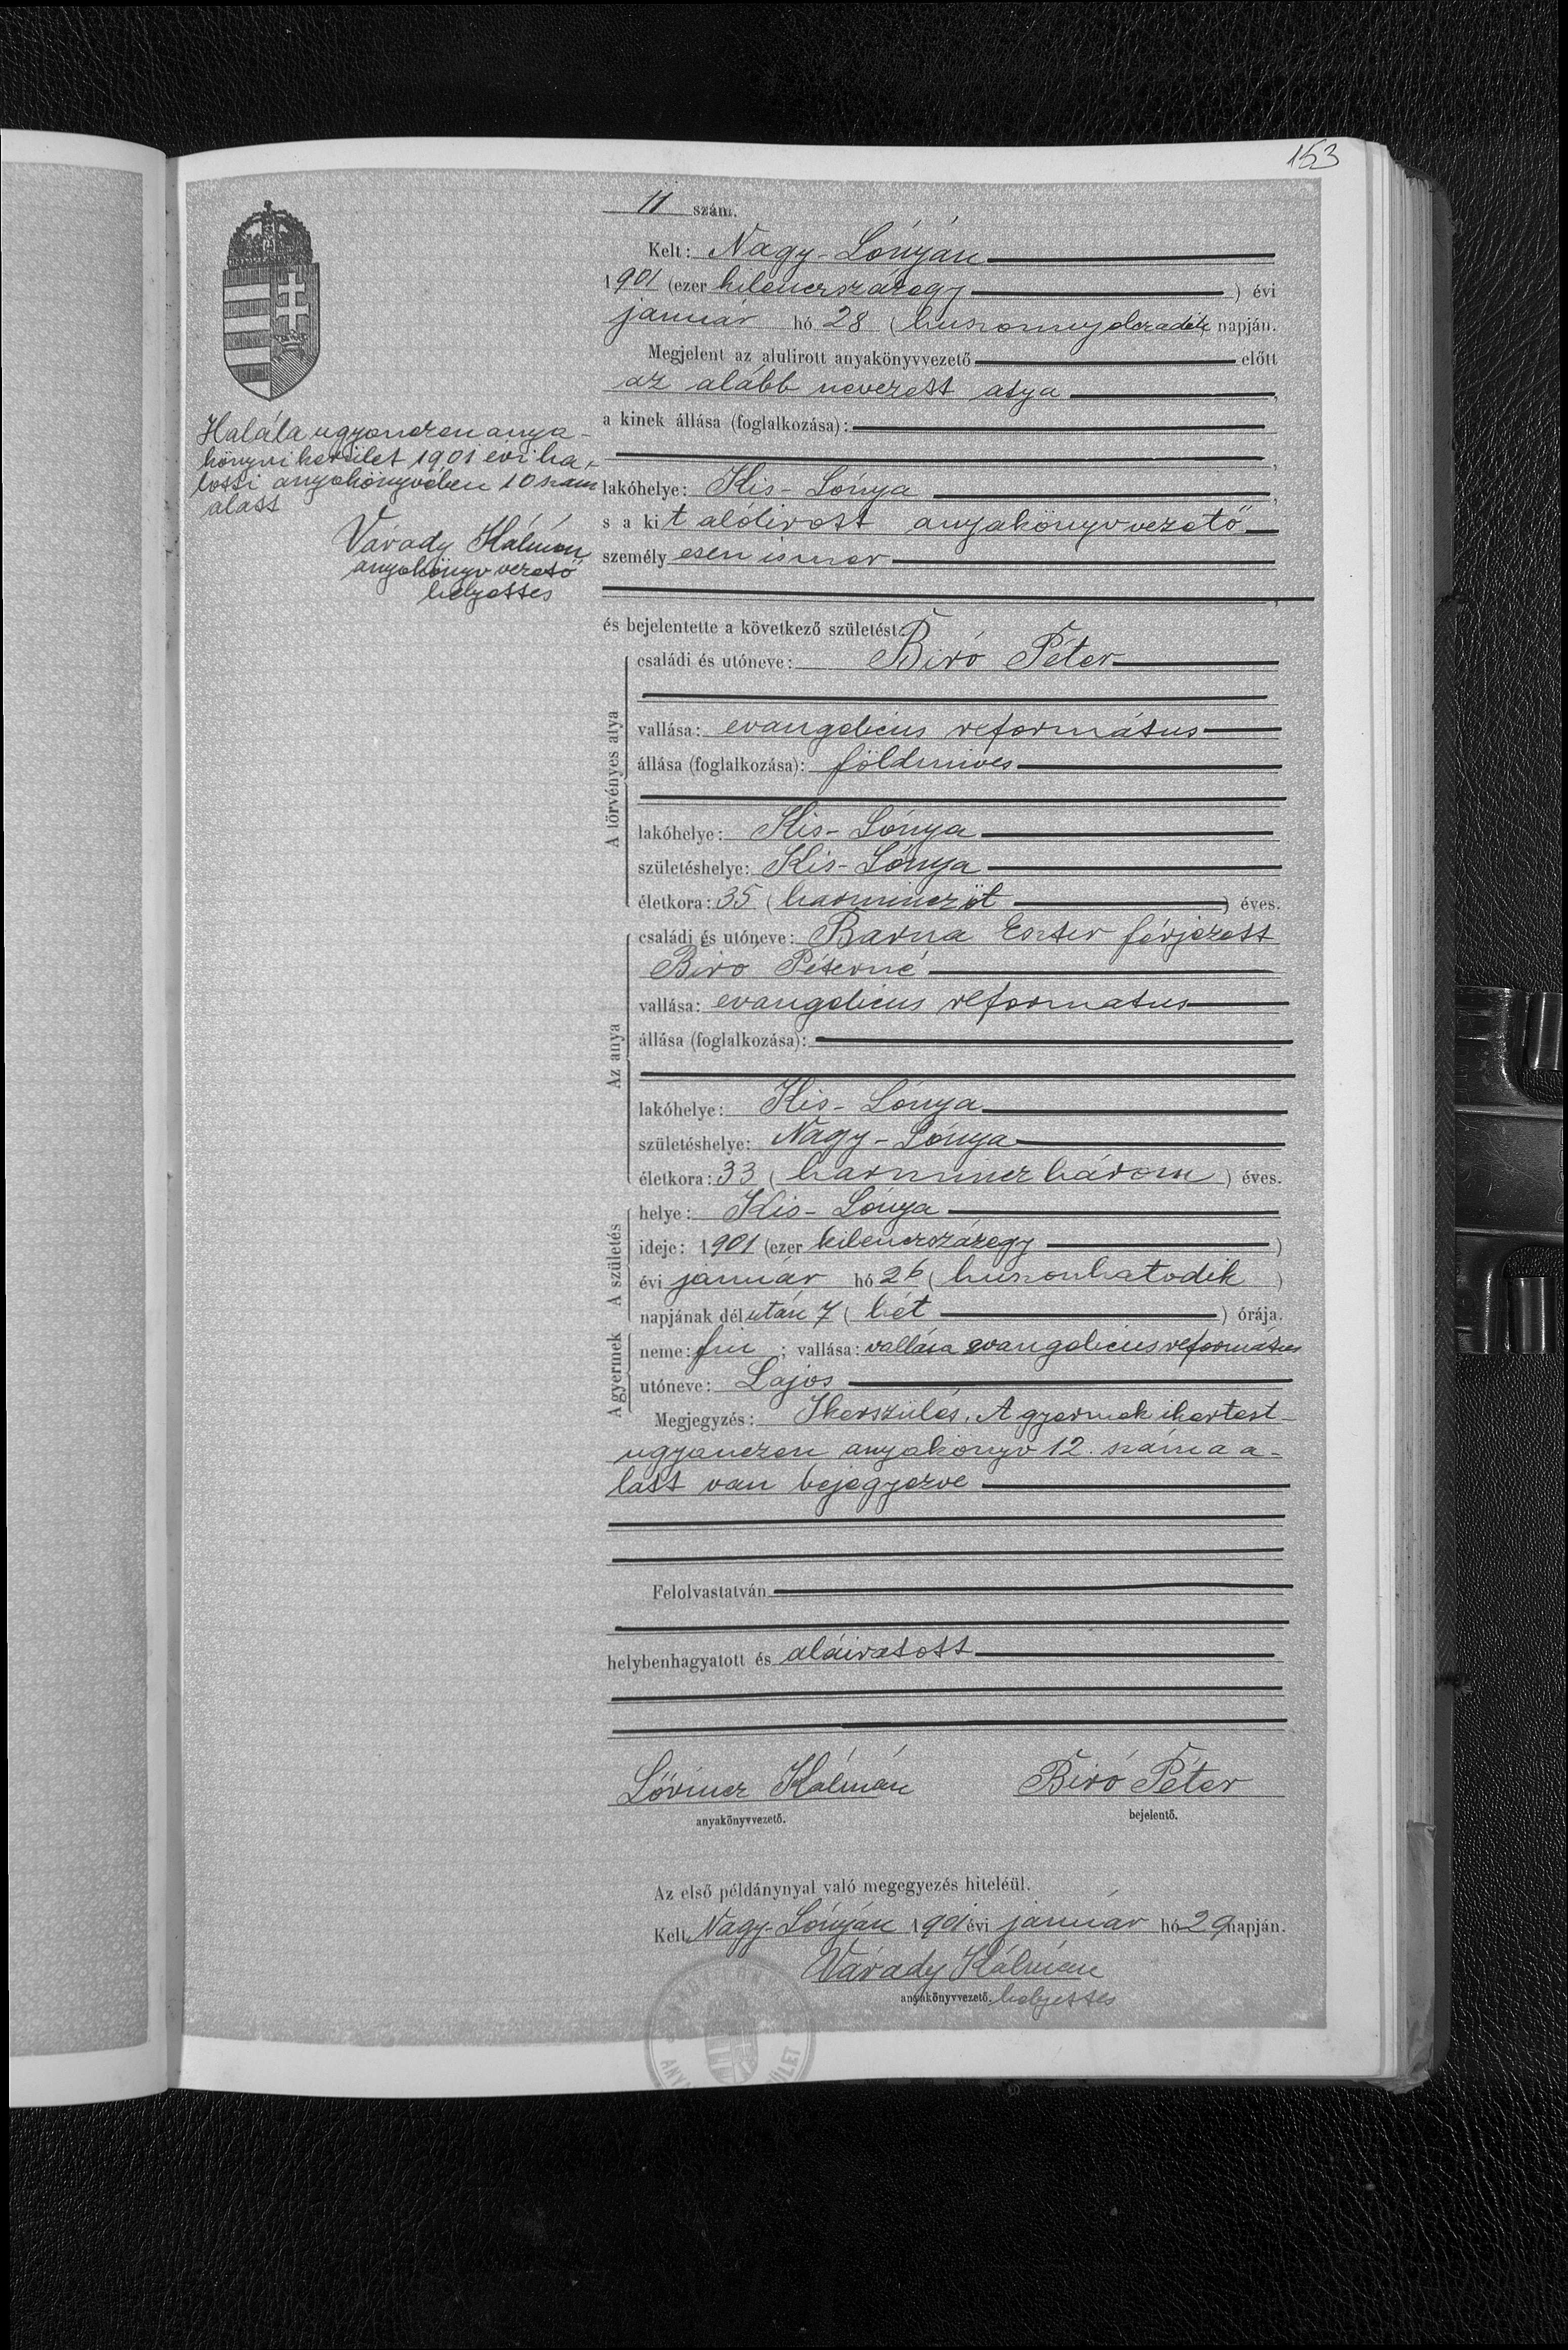 153
11 szám.
Kelt: Nagy-Lónyán
1901 (ezer kilenczszázegy) évi
január hó 28 (huszonnyolczadik) napján.
Megjelent az alulirott anyakönyvvezető előtt
az alább nevezett atya,
a kinek állása (foglalkozása):
,
lakóhelye: Kis-Lónya,
s a kit alólirott anyakönyvvezető
személyesen ismer
,
és bejelentette a következő születést:
A törvényes atya
családi és utóneve: Biró Péter
vallása: evangelicus református
állása (foglalkozása): földmives
lakóhelye: Kis-Lónya
születéshelye: Kis-Lónya
életkora: 35 (harminczöt) éves.
Az anya
családi és utóneve: Barna Eszter férjezett
Biró Péterné
vallása: evangelicus reformatus
állása (foglalkozása):
lakóhelye: Kis-Lónya
születéshelye: Nagy-Lónya
életkora: 33 (harminczhárom) éves.
A születés
helye: Kis-Lónya
ideje: 1901 (ezer kilenczszázegy)
évi január hó 26 (huszonhatodik)
napjának délután 7 (hét) órája.
A gyermek
neme: fiu; vallása: vallása evangelicus református
utóneve: Lajos
Megjegyzés: Ikerszülés. A gyermek ikertest-
ugyanezen anyakönyv 12. száma a-
latt van bejegyezve
Felolvastatván
helybenhagyatott és aláiratott
Lörincz Kálmán Biró Péter
anyakönyvvezető. bejelentő.
Az első példánynyal való megegyezés hiteléül.
Kelt Nagy-Lónyán 1901 évi január hó 29 napján.
Várady Kálmán
anyakönyvvezető. helyettes
Halála ugyanezen anya-
könyvi kerület 1901 évi ha-
lotti anyakönyvében 10 szám
alatt
Várady Kálmán
anyakönyvvezető
helyettes